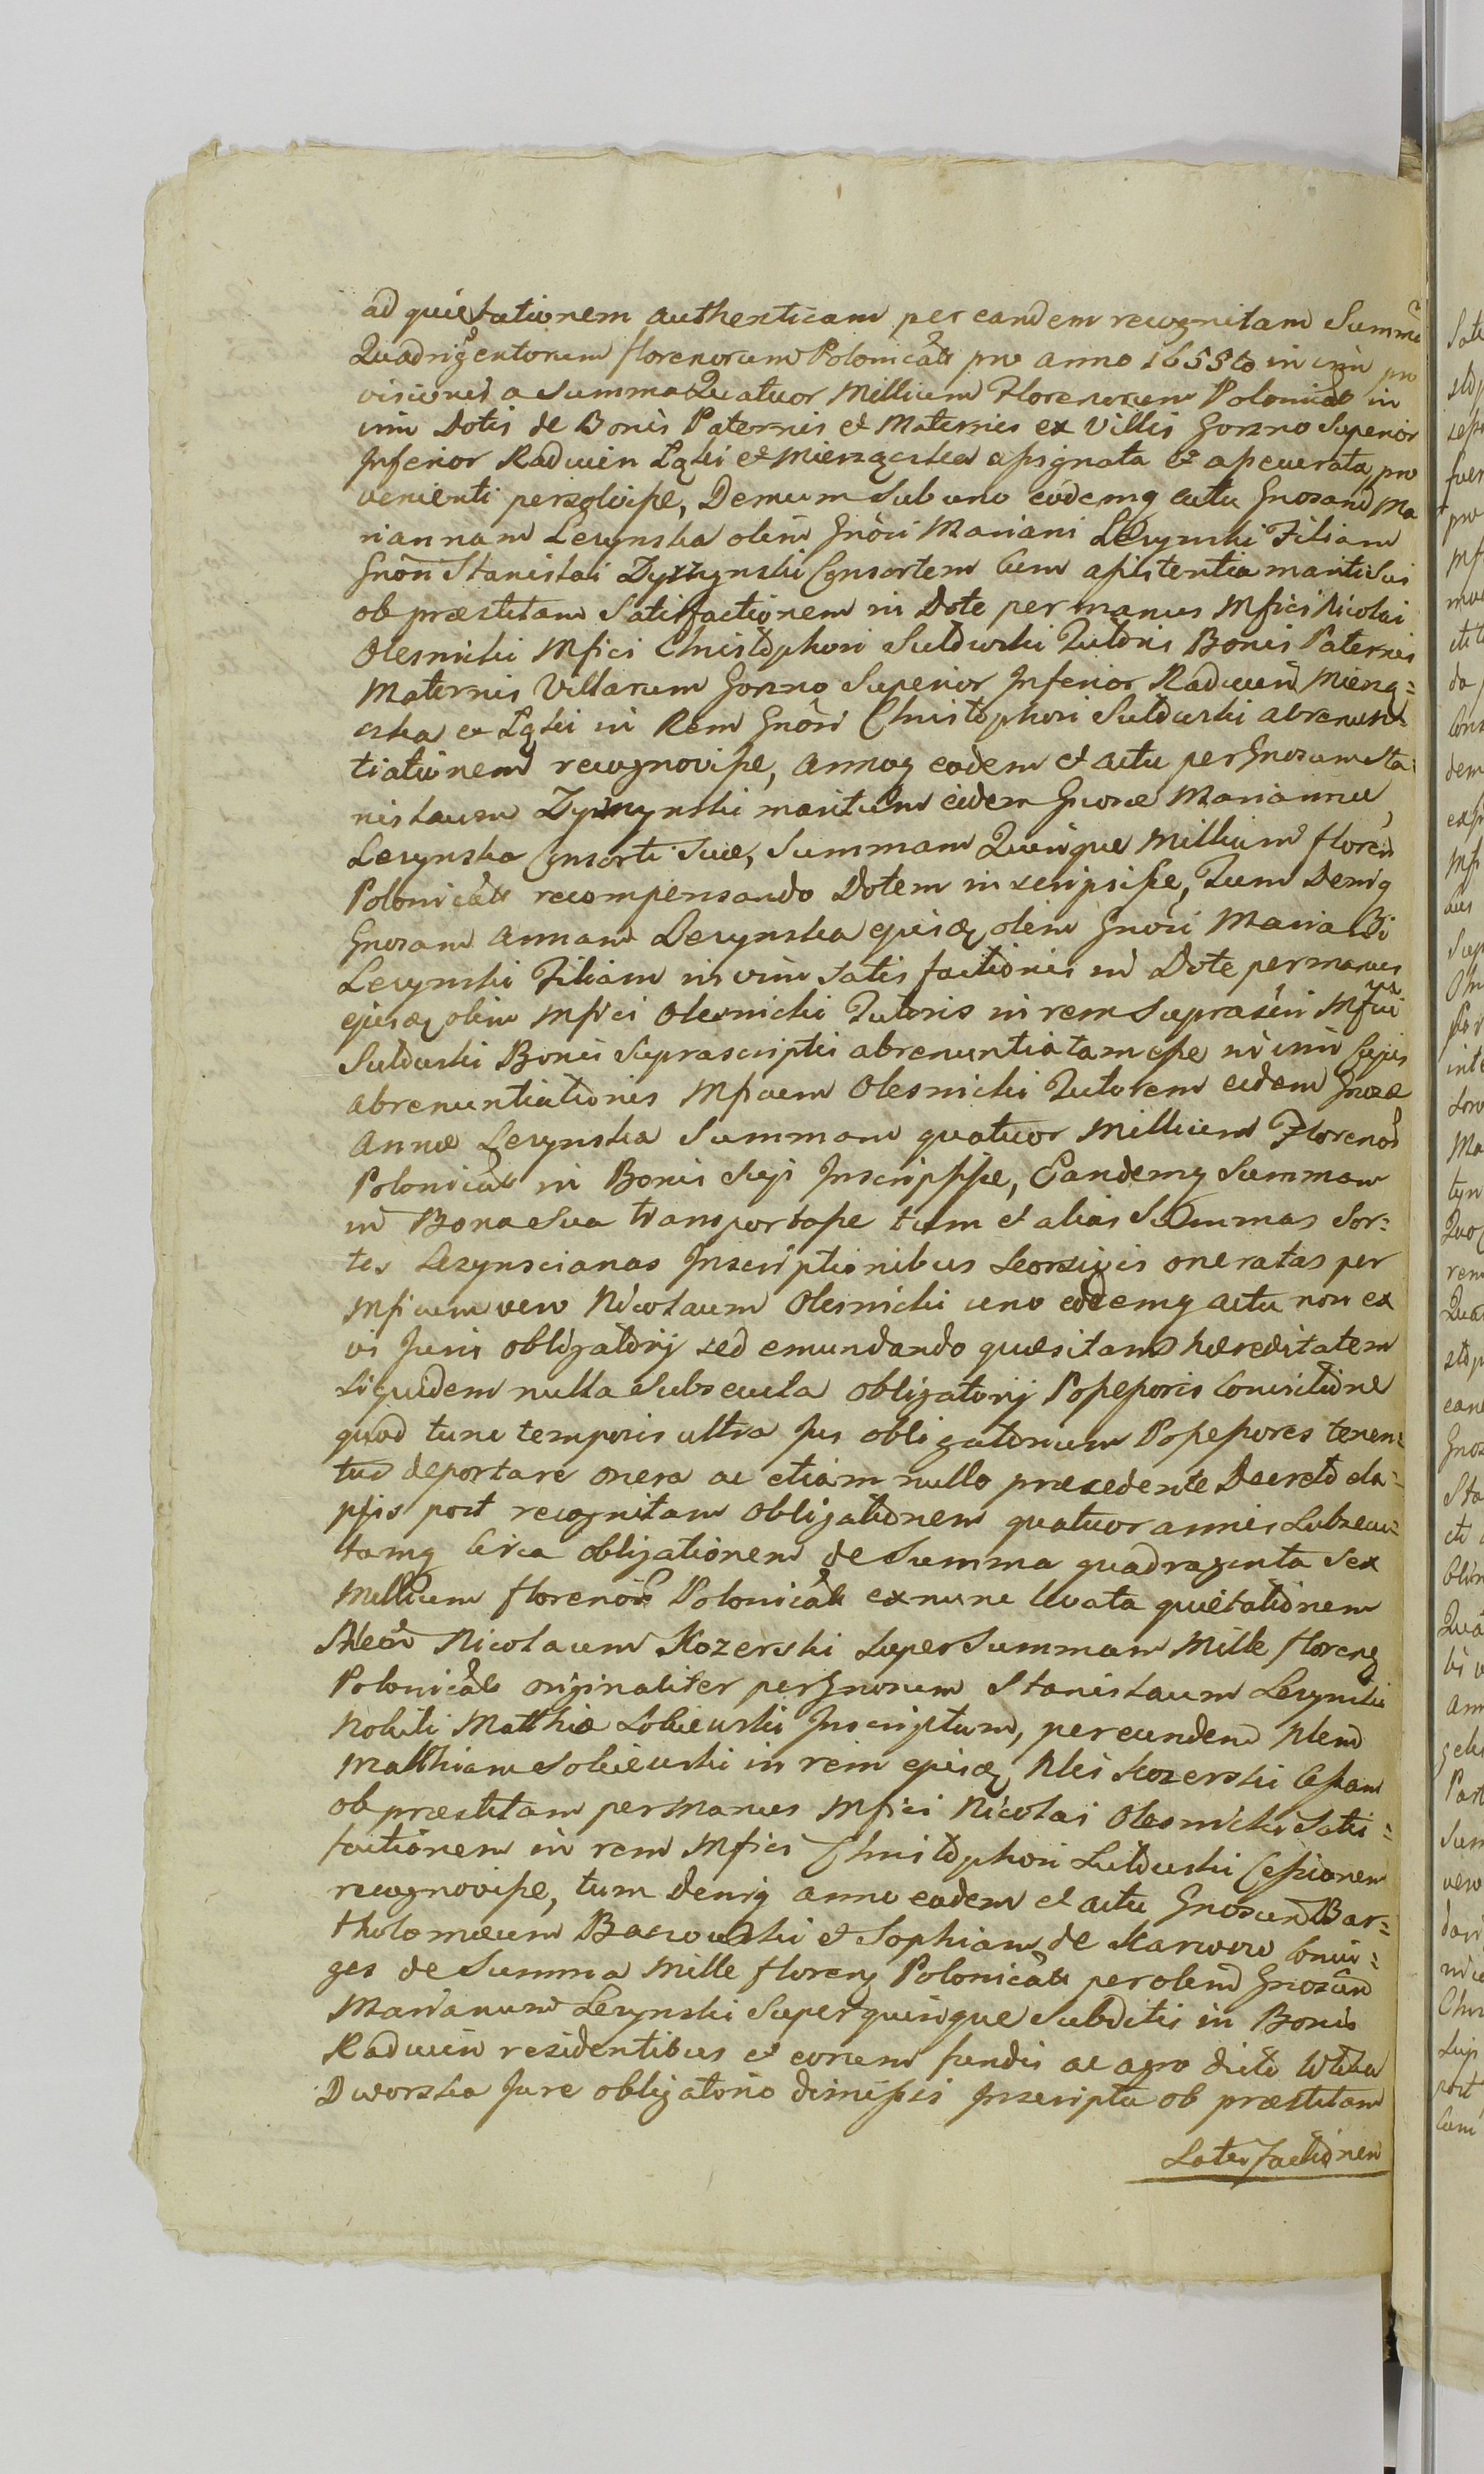 ad quietationem authenticam per eandem recognitam Summã
Quadrigentorum florenorum Polonicãl pro anno 1655to in vim pro
visionis a Summa Quatuor Millium Florenorum Polonicãl in
vim Dotis de Bonis Paternis et Maternis ex Villis Gorzno Superior
Inferior Radwin Lgki et Mierzączka assignata et assecurata pro
venienti persolvisse, Demum sub uno eodemq actu Gnosam Ma
riannam Lezynska olim Gnosi Mariani Lezynski Filiam
Gnosi Stanislai Consortem Cum assistentia mariti Sui
ob præstitam Satisfactionem in Dote per manus Mfici Nicolai
Olesnicki Mfici Christophori Sułowski Tutoris Bonis Paternis
Maternis Villarum Gorzno Superior Inferior Radwin Mierzą=
czka et Lgki in Rem Gnosi Christophori Sułowski abrenun=
tiationem recognovisse, annoq eodem et actu per Gnosum Sta
nislaum maritum eidem Gnosæ Mariannæ
Lezynska Consorti Suæ, Summam Quinque Millium floren
Polonicãl recompensando Dotem inscripsisse, Tum Deniq
Gnosam Annam Lezynska ejusq olim Gnosi Mariani
Lezynski Filiam in vim Satisfactionis in Dote per manus
ejusq olim Mfici Olesnicki Tutoris in rem Suprascri Mfici
Sułowski Bonis Suprascriptis abrenuntiatam esse in vim Cujus
abrenuntiationis Mficum Olesnicki Tutorem eidem Gnosæ
Annæ Lezynska Summam quatuor Millium Florenos
Polonicãl in Bonis Suis Inscripsisse, Eandemq Summam
in Bona Sua transportasse tum et alias Summas Sor=
tes Lezynscianas Inscriptionibus Seorsivis oneratas per
Mficum vero Nicolaum Olesnicki uno eodemq actu non ex
vi Juris obligatorij sed emundando quæsitam hæreditatem
Siquidem nulla Subsecuta obligatorij Possessoris Convictione
quod tunc temporis ultra Jus obligatorium Possessores tenen=
tur deportare onera ac etiam nullo præcedente Decreto ela=
psis post recognitam Obligationem quatuor annis Subsecu=
tamq Circa obligationem de Summa quadraginta Sex
Millium florenos Polonicãl ex nunc levata quietationem
Nleõ Nicolaum Kozerski Super Summam Mille florenq
Polonicãl originaliter per Gnosum Stanislaum Lezynski
Nobili Matthiæ Sobiewski Inscriptum, per eundem Nlem
Matthiam Sobiewski in rem ejusq Nlis Kozerski Cessam
ob præstitam per Manus Mfici Nicolai Olesnicki Satis=
factionem in rem Mfici Christophori Sułowski Cessionem
recognovisse, tum Deniq anno eodem et actu Gnosum Bar=
tholomæum et Sophiam de Conju=
ges de Summa Mille florenq Polonicãl per olim Gnosum
Marianum Lezynski Super quinque Subditis in Bonis
Radwin residentibus et eorum fundis ac agro dicto
Dworska Jure obligatorio dimissis Inscripta ob præstitam
Satisfactionem